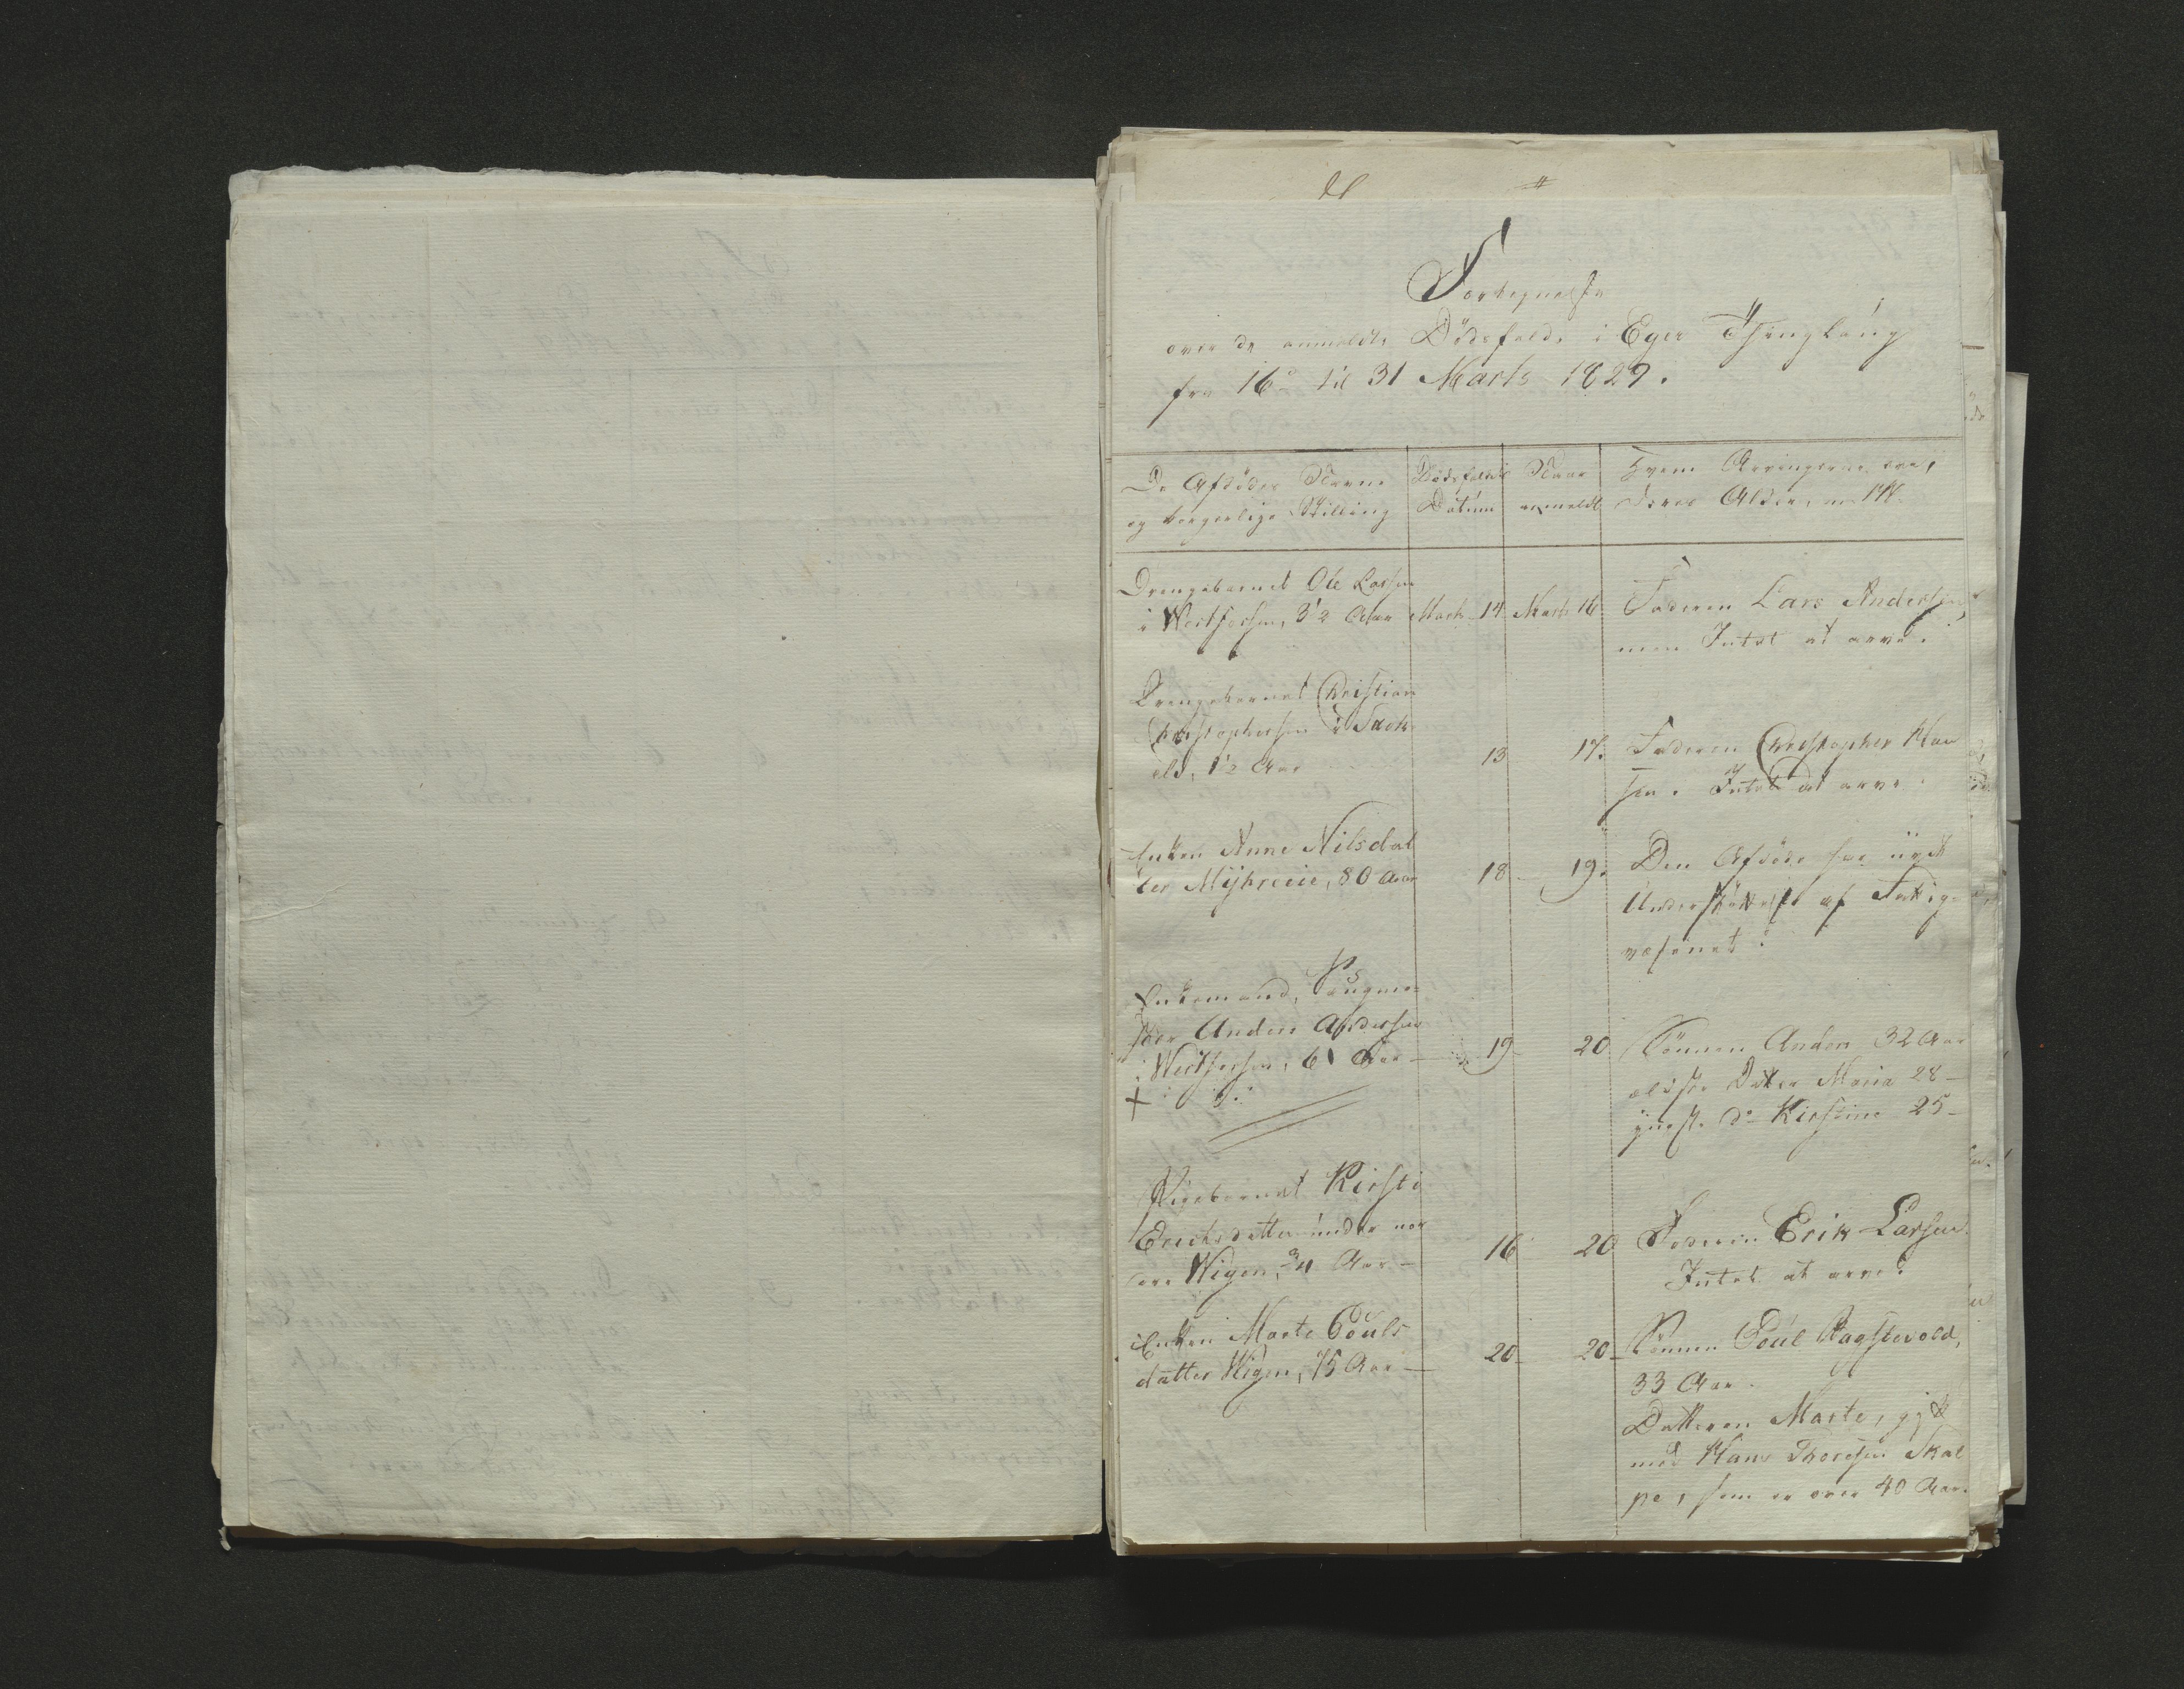 Fortegnelse
over de anmeldte Dödsfald i Eger Thinglaug
fra 16de til 31 Marts 1829.
De Afdödes Navne
og borgerlige Stilling
Dödsfaldets
Datum
Naar
anmeldt
Hvem Arvingerne ere,
deres Alder, m: M.
Drengebarnet Ole Larsen
i Westfossen, 3 1/2 Aar
Marts 14
Marts 16
Faderen Lars Andersen,
men Intet at arve.
Drengebarnet Christian
Christophersen i
1 1/2 Aar
13
17.
Faderen Christopher Han
sen. Intet at arve.
Enken Anne Nilsdat
ter Myhreeie, 80 Aar
18
19.
Den Afdöde har nydt
Understöttelse af Fattig-
væsenet.
Enkemand, Saugme-
ster Anders Andersen
i Westfossen, 61 Aar
19
20
Sönnen Anders 32 Aar
ældste Datter Maria 28 -
yngste do Kirstine 25 -
Pigebarnet Kirsti
Erichsdatter under nor
dre Wigen, 3/4 Aar -
16
20
Faderen Erik Larsen.
Intet at arve.
Enken Marte Pouls
datter Wigen, 75 Aar -
20 -
20 -
Sönnen Poul Hagstevold,
33 Aar.
Datteren Marte, gift
med Hans Thoresen Skal
pe, som er over 40 Aar.